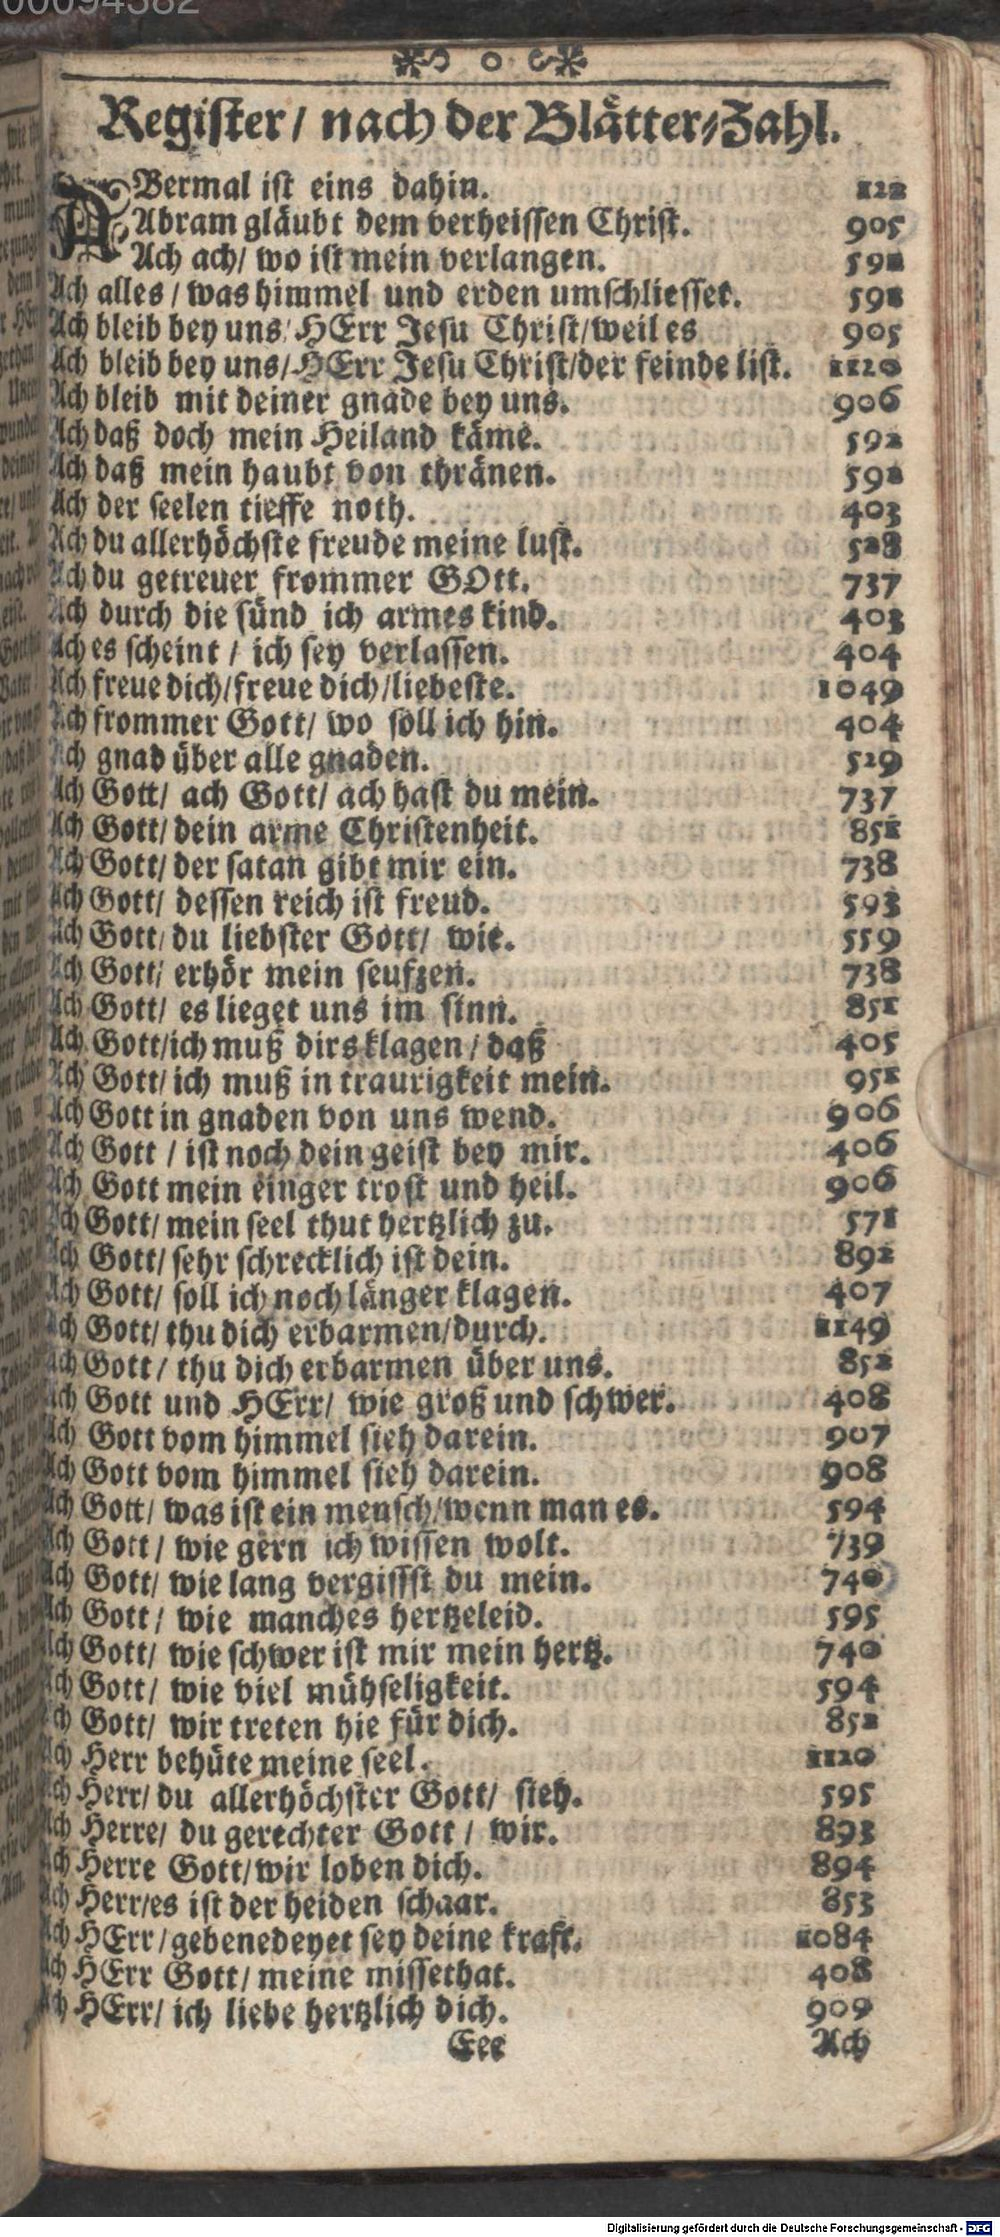 00094582
Register/ nach der Blätter-Zahl.
ABermal ist eins dahin. 122
Abram gläubt dem verheissen Christ. 905
Ach ach/ wo ist mein verlangen. 592
Ach alles/ was himmel und erden umschliesset. 598
Ach bleib bey uns/ HErr Jesu Christ/weil es 905
Ach bleib bey uns/HErr Jesu Christ/der feinde list. 1120
Ach bleib mit deiner gnade bey uns. 906
Ach daß doch mein Heiland käme. 592
Ach daß mein haubt von thränen. 592
Ach der seelen tieffe noth. 403
Ach du allerhöchste freude meine lust. 528
Ach du getreuer frommer GOtt. 737
Ach durch die sünd ich armes kind. 403
Ach es scheint/ ich sey verlassen. 404
Ach freue dich/freue dich/liebeste. 1049
Ach frommer Gott/ wo soll ich hin. 404
Ach gnad über alle gnaden. 529
Ach Gott/ ach Gott/ ach hast du mein. 737
Ach Gott/ dein arme Christenheit. 851
Ach Gott/ der satan gibt mir ein. 738
Ach Gott/ dessen reich ist freud. 593
Ach Gott/ du liebster Gott/ wie. 559
Ach Gott/ erhör mein seufzen. 738
Ach Gott/ es lieget uns im sinn. 851
Ach Gott/ich muß dirs klagen/ daß 405
Ach Gott/ ich muß in traurigkeit mein. 951
Ach Gott in gnaden von uns wend. 906
Ach Gott/ ist noch dein geist bey mir. 406
Ach Gott mein einger trost und heil. 906
Ach Gott/ mein seel thut hertzlich zu. 571
Ach Gott/ sehr schrecklich ist dein. 892
Ach Gott/ soll ich noch länger klagen. 407
Ach Gott/ thu dich erbarmen/durch. 1149
Ach Gott/ thu dich erbarmen über uns. 852
Ach Gott und HErr/ wie groß und schwer. 408
Ach Gott vom himmel sieh darein. 907
Ach Gott vom himmel sieh darein. 908
Ach Gott/ was ist ein mensch/wenn man es. 594
Ach Gott/ wie gern ich wissen wolt. 739
Ach Gott/ wie lang vergissst du mein. 740
Ach Gott/ wie manches hertzeleid. 595
Ach Gott/ wie schwer ist mir mein hertz. 740
Ach Gott/ wie viel mühseligkeit. 594
Ach Gott/ wir treten hie für dich. 852
Ach Herr behüte meine seel. 1120
Ach Herr/ du allerhöchster Gott/ sieh. 595
Ach Herre/ du gerechter Gott/ wir. 893
Ach Herre Gott/wir loben dich. 894
Ach Herr/es ist der heiden schaar. 853
Ach HErr/gebenedeyet sey deine kraft. 1084
Ach HErr Gott/ meine missethat. 408
Ach HErr/ ich liebe hertzlich dich. 909
Eee Ach
Digitalisierung gefördert durch die Deutsche Forschungsgemeinschaft - DFG